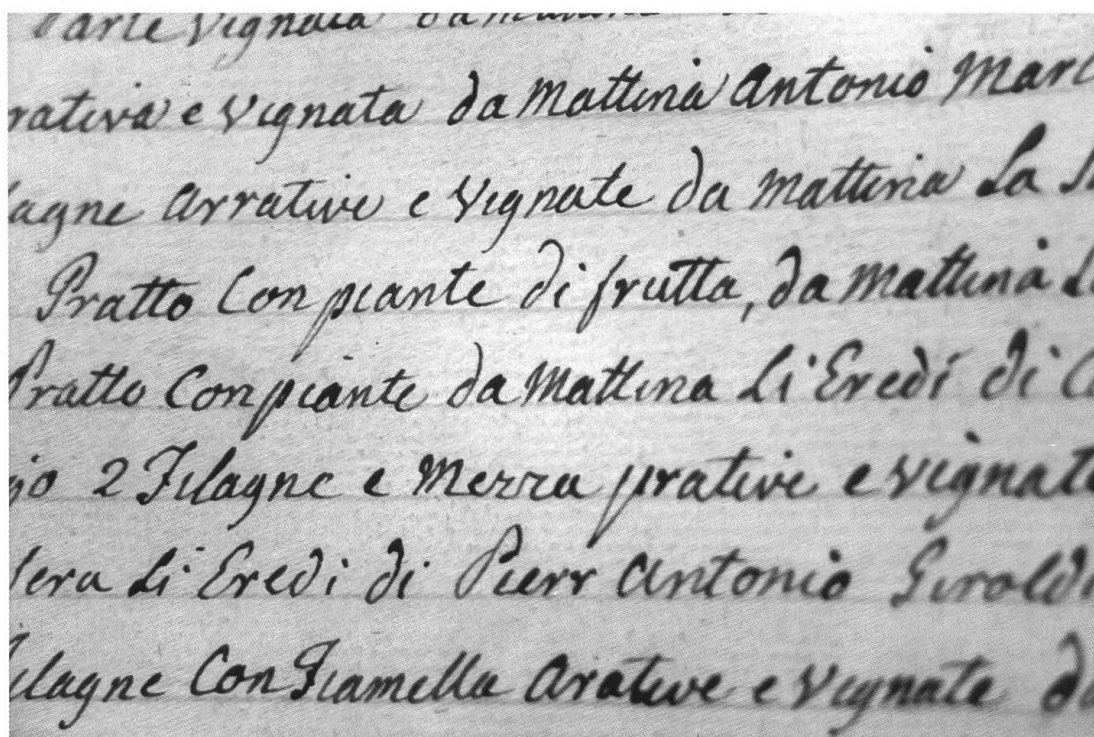 Parte Vignata da
rativa e Vignata da Mattina Antonio Mar
lagne Arrative e Vignate da Mattina La
Pratto Con piante di frutta, da Mattina L
Pratto Con piante da Mattina Li Eredi di C
2 Filagne e Mezza prative e vignate
Sera Li Eredi di Pierr Antonio Giroldi
ilagne Con Fiamella Arative e Vignate da